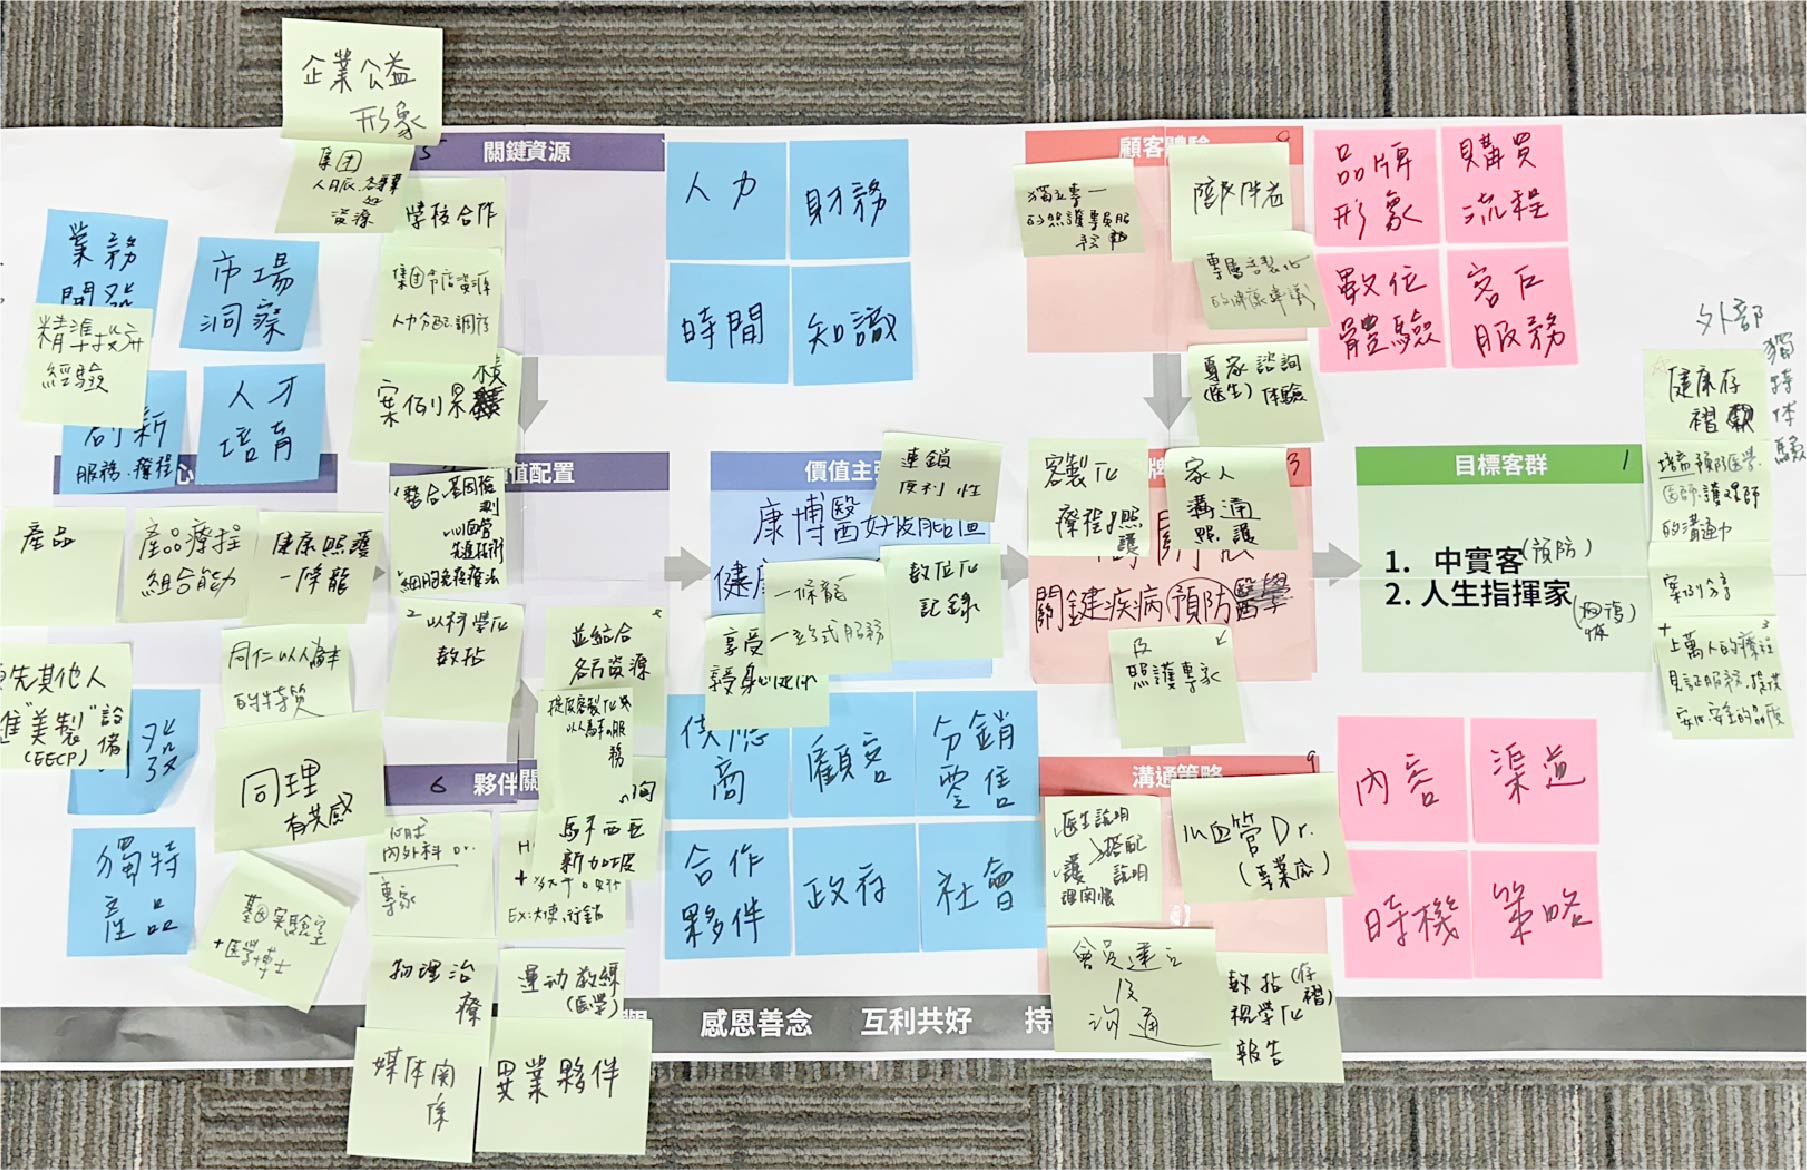 企業公益
形象
關鍵資源
集团
資源
學校合作
人力分配調存
案例累積
業務
開發
市場
洞察
精準技術
經驗
創新
服務、療程
人才
培育
心
值配置
人力
財務
時間
知識
顧客體驗
獨立專一
陪伴者
專屬客製化
的健康建議
專家諮詢
(医生)体驗
品牌
形象
購買
流程
數位
體驗
客戶
服務
外部
獨特体驗
健康存
褶
培育預防医学
医師、護理師
的溝通力
案例分享
上萬人的療程
見証服務,提供
安心、安全的品質
產品
產品療程
組合能力
健康照護
一條龍
整合、基因檢
測
心血管
先進技術
細胞免疫療法
以科學化
數据
並結合
各方資源
提供客製化
以人為本的服
務
同仁以人為本
的特質
領先其他人
進"美製"設備
(EECP)
研發
同理
有共感
獨特
產品
基因實驗室
+医學博士
價值主張
康博醫好投能值
健康
連鎖
便利性
一條龍
一站式服務
數位化
記錄
享受
享受身心健康
客製化
療程
照護
家人
溝通
照護
3
關鍵疾病預防醫學
及
照護專家
目標客群
1
1. 中實客(預防)
2. 人生指揮家
供應
商
顧客
分銷
零售
合作
夥伴
政府
社會
6
夥伴關
內外科 Dr.
專家
馬來西亞
新加坡
EX:大使、行銷
物理治
療
運动教練
(医學)
媒体関
係
異業夥伴
溝通策略
9
医生說明
搭配
護 說明
理関懷
心血管Dr.
(專業感)
會員建立
及
溝通
數据(存
褶)
視學化
報告
內容
渠道
時機
策略
感恩善念
互利共好
持